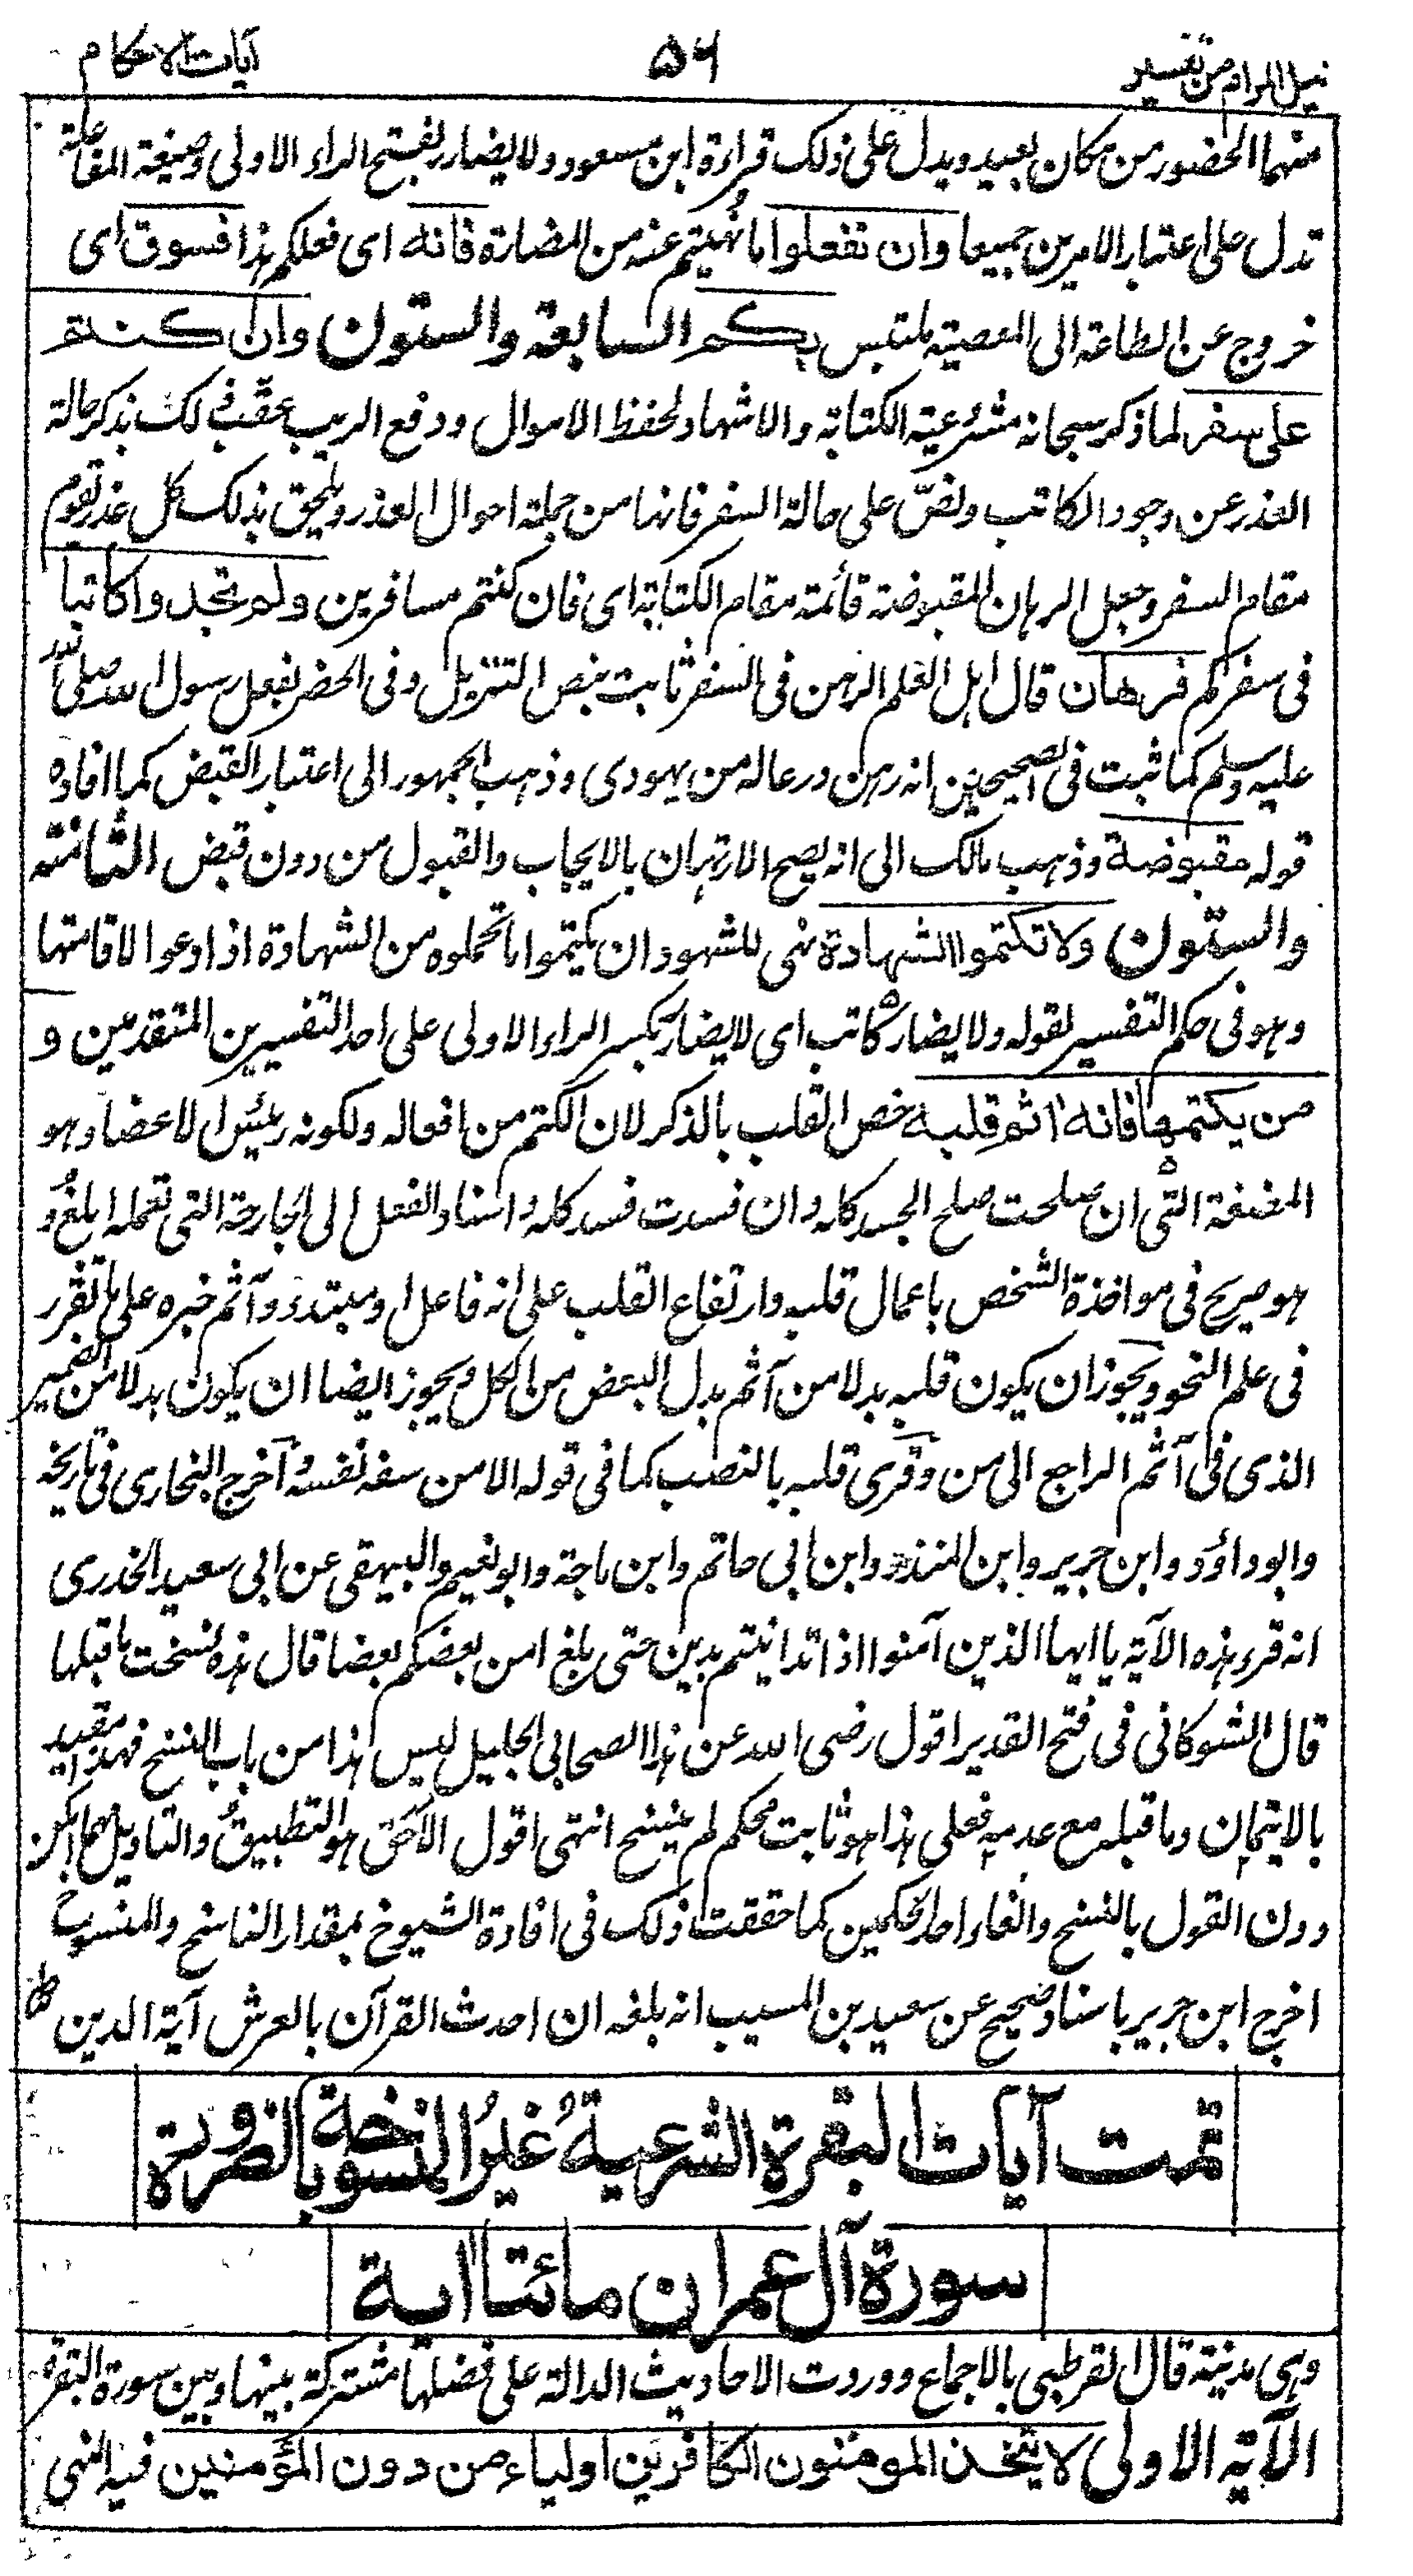 نيل المرام من تفسير ٥٦ آيات الاحكام
منهما الحضور من مكان بعيد ويدل على ذلك قراءة ابن مسعود ولا يضارر بفتح الراء الاولى وصيغة المفاعلة
تدل على اعتبار الامرين جميعا وان تفعلوا ما نهيتم عنه من المضارة فانه اى فعلكم هذا فسوق اى
خروج عن الطاعة الى المعصية ملتبس بكم السابعة والستون وان كنتم
على سفر لما ذكر سبحانه مشروعية الكتابة والاشهاد لحفظ الاموال ودفع الريب عقب ذلك بذكر حالة
العذر عن وجود الكاتب ونص على حالة السفر فانها من جملة احوال العذر ويلحق بذلك كل عذر يقوم
مقام السفر وجعل الرهان المقبوضة قائمة مقام الكتابة اى فان كنتم مسافرين ولم تجدوا كاتبا
فى سفركم فرهان قال اهل العلم الرهن فى السفر ثابت بنص التنزيل وفى الحضر بفعل رسول الله صلى الله
عليه وسلم كما ثبت فى الصحيحين انه رهن درعا له من يهودى وذهب الجمهور الى اعتبار القبض كما افاده
قوله مقبوضة وذهب مالك الى انه يصح الارتهان بالايجاب والقبول من دون قبض الثامنة
والستون ولا تكتموا الشهادة نهى للشهود ان يكتموا ما تحملوه من الشهادة اذا دعوا لاقامتها
وهو فى حكم التفسير لقوله ولا يضار كاتب اى لا يضارر بكسر الراء الاولى على احد التفسيرين المتقدمين و
من يكتمها فانه اثم قلبه خص القلب بالذكر لان الكتم من افعاله ولكونه رئيس الاعضاء وهو
المضغة التى ان صلحت صلح الجسد كله وان فسدت فسد كله واسناد الفعل الى الجارحة التى تعمله ابلغ و
هو صريح فى مواخذة الشخص باعمال قلبه وارتفاع القلب على انه فاعل او مبتدء وآثم خبره على ما تقرر
فى علم النحو ويجوز ان يكون قلبه بدلا من آثم بدل البعض من الكل ويجوز ايضا ان يكون بدلا من الضمير
الذى فى آثم الراجع الى من وقرى قلبه بالنصب كما فى قوله الا من سفه نفسه وآخرج البخارى فى تاريخه
وابو داؤد وابن جرير وابن المنذر وابن ابى حاتم وابن ماجة وابو نعيم والبيهقى عن ابى سعيد الخدرى
انه قرء هذه الآية يا ايها الذين آمنوا اذا تداينتم بدين حتى بلغ امن بعضكم بعضا قال هذه نسخت ما قبلها
قال الشوكانى فى فتح القدير اقول رضى الله عن هذا الصحابى الجليل ليس هذا من باب النسخ فهذا مقيد
بالايتمان وما قبله مع عدمه فعلى هذا هو ثابت محكم لم ينسخ انتهى اقول الاحق هو التطبيق والتاويل مهما امكن
دون القول بالنسخ والغاء احد الحكمين كما حققت ذلك فى افادة الشيوخ بمقدار الناسخ والمنسوخ
اخرج ابن جرير باسناد صحيح عن سعيد بن المسيب انه بلغه ان احدث القرآن بالعرش آية الدين
تمت آيات البقرة الشرعية غير المنسوخة بالضرورة
سورة آل عمران مائتا اية
وهى مدنية قال القرطبى بالاجماع ووردت الاحاديث الدالة على فضلها مشتركة بينها وبين سورة البقرة
الآية الاولى لا يتخذ المومنون الكافرين اولياء من دون المؤمنين فيه النهى